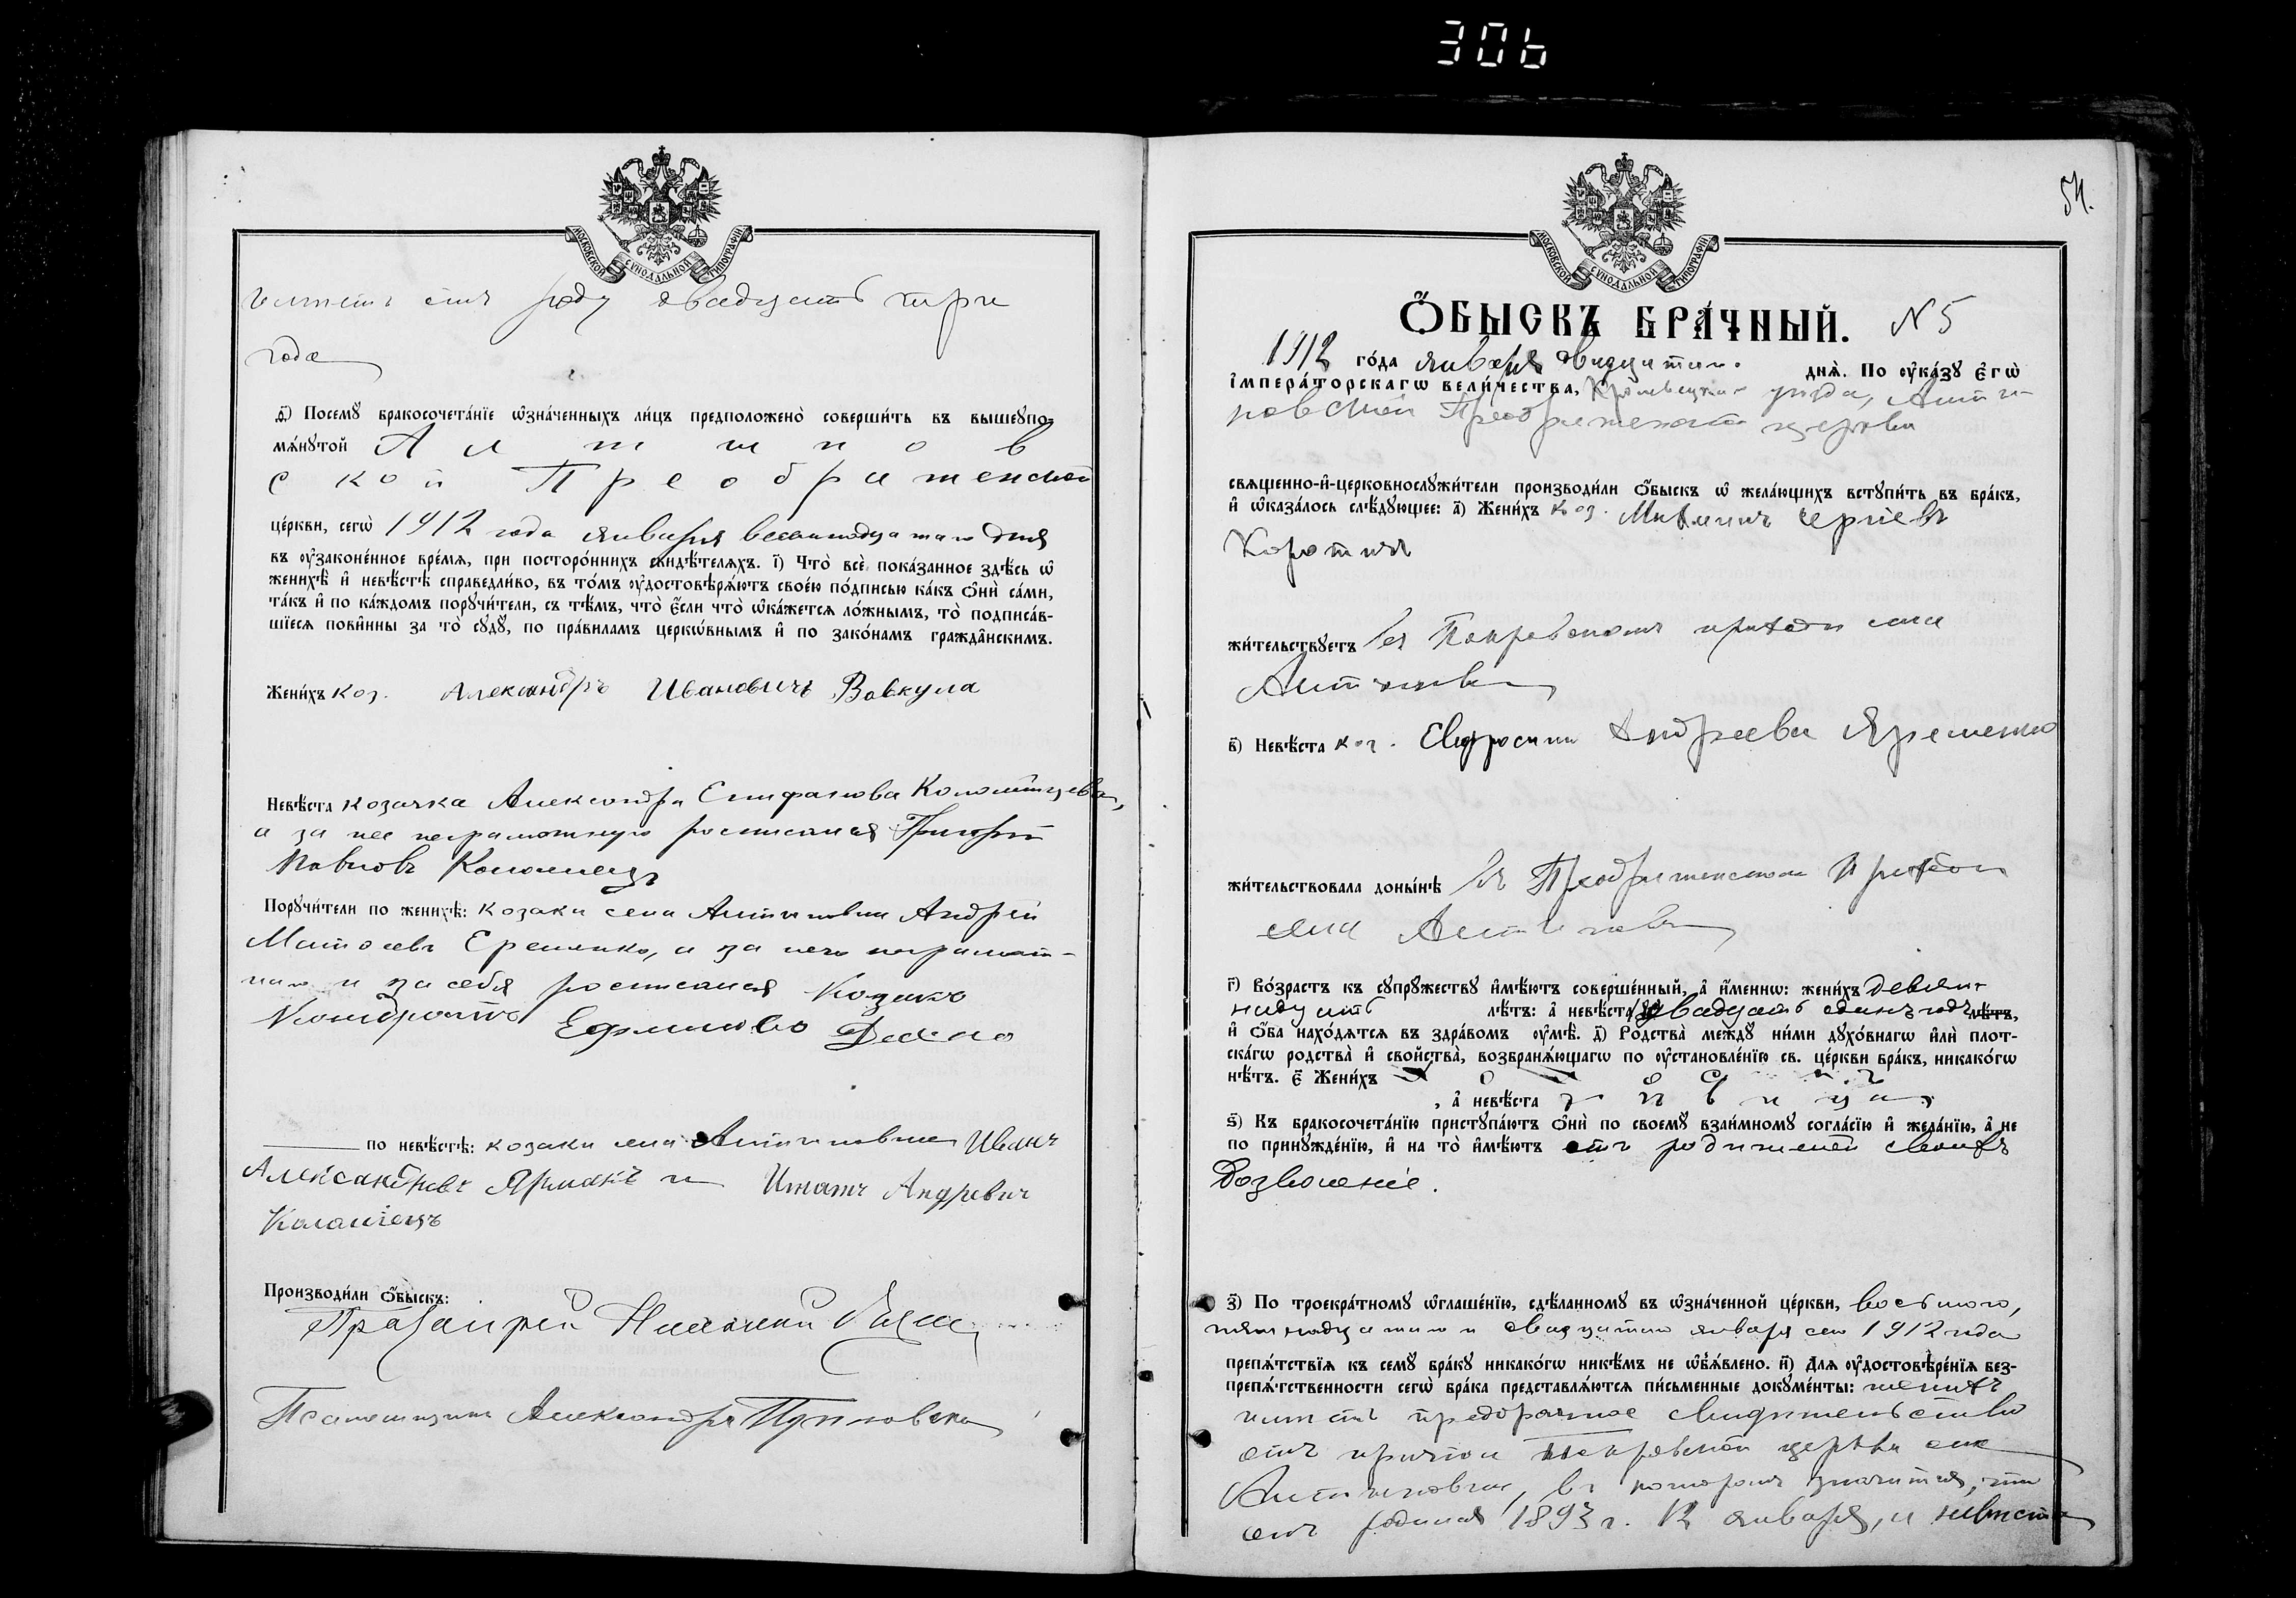 306
МОСКОВСКОЙ СУНОДАЛЬНОЙ ТИПОГРАФІИ
отъ роду двадцать три
года
д҃) Посемꙋ̀ бракосочета́нїе ѡ҆зна́ченныхъ ли́цъ предположено̀ соверши́ть въ вышеꙋпо-
мѧ́нꙋтой Алтинов
ской Преображенской
це́ркви, сегѡ̀ 1912 года января восемнадцатаго дня
въ ᲂу҆законе́нное вре́мѧ, при посторо́ннихъ свидѣ́телѧхъ. і҃) Что̀ всѐ, пока́занное здѣ́сь ѡ҆
женихѣ̀ и҆ невѣ́стѣ справедли́во, въ то́мъ ᲂу҆достовѣрѧ́ютъ свое́ю по́дписью ка́къ ѻ҆нѝ са́ми,
та́къ и҆ по ка́ждомъ порꙋчи́тели, съ тѣ́мъ, что̀ є҆́сли что̀ ѡ҆ка́жетсѧ ло́жнымъ, то̀ подписа́в-
шїесѧ пови́нны за то̀ сꙋдꙋ̀, по пра́виламъ церко́внымъ и҆ по зако́намъ гражда́нскимъ.
Жени́хъ коз. Александръ Ивановичъ Вовкула
Невѣ́ста козачка Александра Епифанова Коломійцева,
а за нее неграмотную росписался Григорій
Павловъ Коломіецъ
Порꙋчи́тели по женихѣ̀: козаки села Алтиновки Андрей
Еременко, а за него неграмот-
наго и за себя росписался Козакъ
Кондратъ Ефимовъ
по невѣ́стѣ: козаки села Алтиновки Иванъ
Александровъ Ярмакъ и Игнатъ Андревич
Коломіецъ
Производи́ли ѻ҆́быскъ:
Псаломщикъ Александръ
54.
МОСКОВСКОЙ СУНОДАЛЬНОЙ ТИПОГРАФІИ
Ѻ҆́БЫСКЪ БРА́ЧНЫЙ. N 5
1912 го́да января двадцатаго днѧ̀. По ᲂу҆ка́зꙋ Є҆гѡ̀
І҆мпера́торскагѡ вели́чества, Кролевецкаго уѣзда, Алти-
новской Преображенской церкви
свѧще́нно-и҆-церковнослꙋжи́тели производи́ли ѻ҆́быскъ ѡ҆ жела́ющихъ встꙋпи́ть въ бра́къ,
и҆ ѡ҆каза́лось слѣ́дꙋющее: а҃) Жени́хъ коз.
Короткій
жи́тельствꙋетъ въ Покровскомъ приходѣ села
Алтиновки
в҃) Невѣ́ста коз. Евфросинія Андреева Яременко
жи́тельствовала доны́нѣ въ Преображенскомъ приходѣ
села Алтиновки
г҃) Во́зрастъ къ сꙋпрꙋ́жествꙋ и҆мѣ́ютъ соверше́нный, а҆ и҆́меннѡ: жени́хъ девят-
надцать лѣ́тъ: а҆ невѣ́ста двадцать одинъ годъ лѣ́тъ,
и҆ ѻ҆́ба нахо́дѧтсѧ въ здра́вомъ ᲂу҆мѣ̀. д҃) Родства̀ междꙋ̀ ни́ми дꙋхо́внагѡ и҆лѝ плот-
ска́гѡ родства̀ и҆ свойства̀, возбранѧ́ющагѡ по ᲂу҆становле́нїю св. це́ркви бра́къ, никако́гѡ
нѣ́тъ. є҃) Жени́хъ холостъ
, а҆ невѣ́ста дѣвица
ѕ҃) Къ бракосочета́нїю пристꙋпа́ютъ ѻ҆нѝ по своемꙋ̀ взаи́мномꙋ согла́сїю и҆ жела́нїю, а҆ не
по принꙋжде́нїю, и҆ на то̀ и҆мѣ́ютъ отъ родителей своихъ
дозволеніе.
з҃) По троекра́тномꙋ ѡ҆глаше́нїю, сдѣ́ланномꙋ въ ѡ҆зна́ченной це́ркви, восьмого,
пятнадцатаго и двадцатаго января сего 1912 года
препѧ́тствїѧ къ семꙋ̀ бра́кꙋ никако́гѡ никѣ́мъ не ѡ҆б̾ѧ́влено. и҃) Длѧ ᲂу҆достовѣре́нїѧ без-
препѧ́тственности сегѡ̀ бра́ка представлѧ́ютсѧ пи́сьменные докꙋме́нты: женихъ
имѣетъ предбрачное свидѣтельство
отъ причта Покровской церкви села
Алтиновки, въ которомъ значится, что
онъ родился 1893 г. 12 января, и невѣста